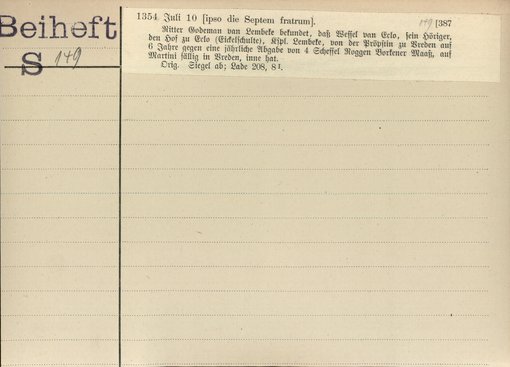 Beiheft
S 149
1354 Juli 10 [ipso die Septem fratrum]. 149 [387
Ritter Godeman van Lembeke bekundet, daß Wessel van Eclo, sein Höriger,
den Hof zu Eclo (Eickelschulte), Kspl. Lembeke, von der Pröpstin zu Vreden auf
6 Jahre gegen eine jährliche Abgabe von 4 Scheffel Roggen Borkener Maaß, auf
Martini fällig in Vreden, inne hat.
Orig. Siegel ab; Lade 208, 8